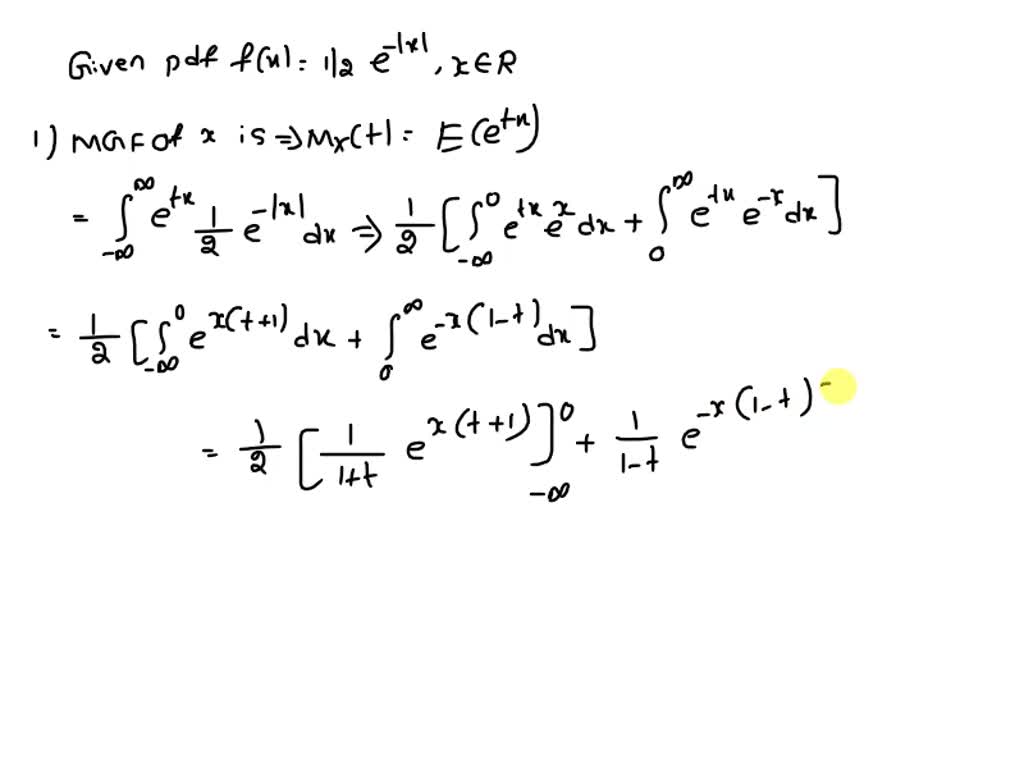 Given pdf f(x) = 1/2 e^{-|x|}, x ∈ R
1) MGF of x is ⇒ M_x(t) = E(e^{tx})
= ∫_{-∞}^{∞} e^{tx} 1/2 e^{-|x|} dx ⇒ 1/2 [∫_{-∞}^{0} e^{tx} e^{x} dx + ∫_{0}^{∞} e^{tx} e^{-x} dx]
= 1/2 [∫_{-∞}^{0} e^{x(t+1)} dx + ∫_{0}^{∞} e^{-x(1-t)} dx]
= 1/2 [1/(1+t) e^{x(t+1)}]_{-∞}^{0} + 1/(1-t) e^{-x(1-t)}